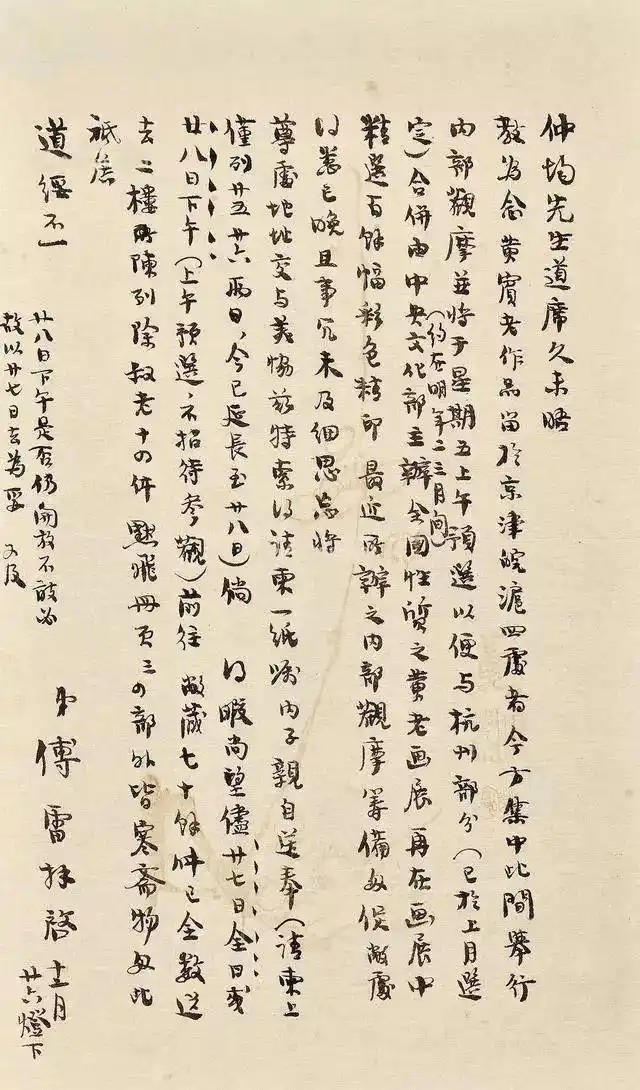 仲均先生道席久未晤
教为念黄賓老作品留於京津皖滬四處者今方集中此間舉行
内部觀摩並將于星期五上午預選以便与杭州部分(已於上月選
定)合併由中央文化部主辦(約在明年二三月间)全國性質之黄老画展再在画展中
精選百餘幅彩色精印最近所辦之内部觀摩籌備匆促敝處
得悉已晚且事冗未及细思忘将
尊處地址交与美協兹特索得請柬一纸嘱内子親自送奉(請柬上
僅列廿五廿六兩日,今已延長至廿八日)倘得暇尚望儘廿七日全日或
廿八日下午(上午預選,不招待參觀)前往敝藏七十餘件已全数送
去二樓所陳列除叔老十の件默飛冊页三の部外皆寒斋物匆此
祇启
道綏不一
弟傅雷拜啓十一月
廿六燈下
廿八日下午是否仍開放不敢必
故以廿七日去為妥又及